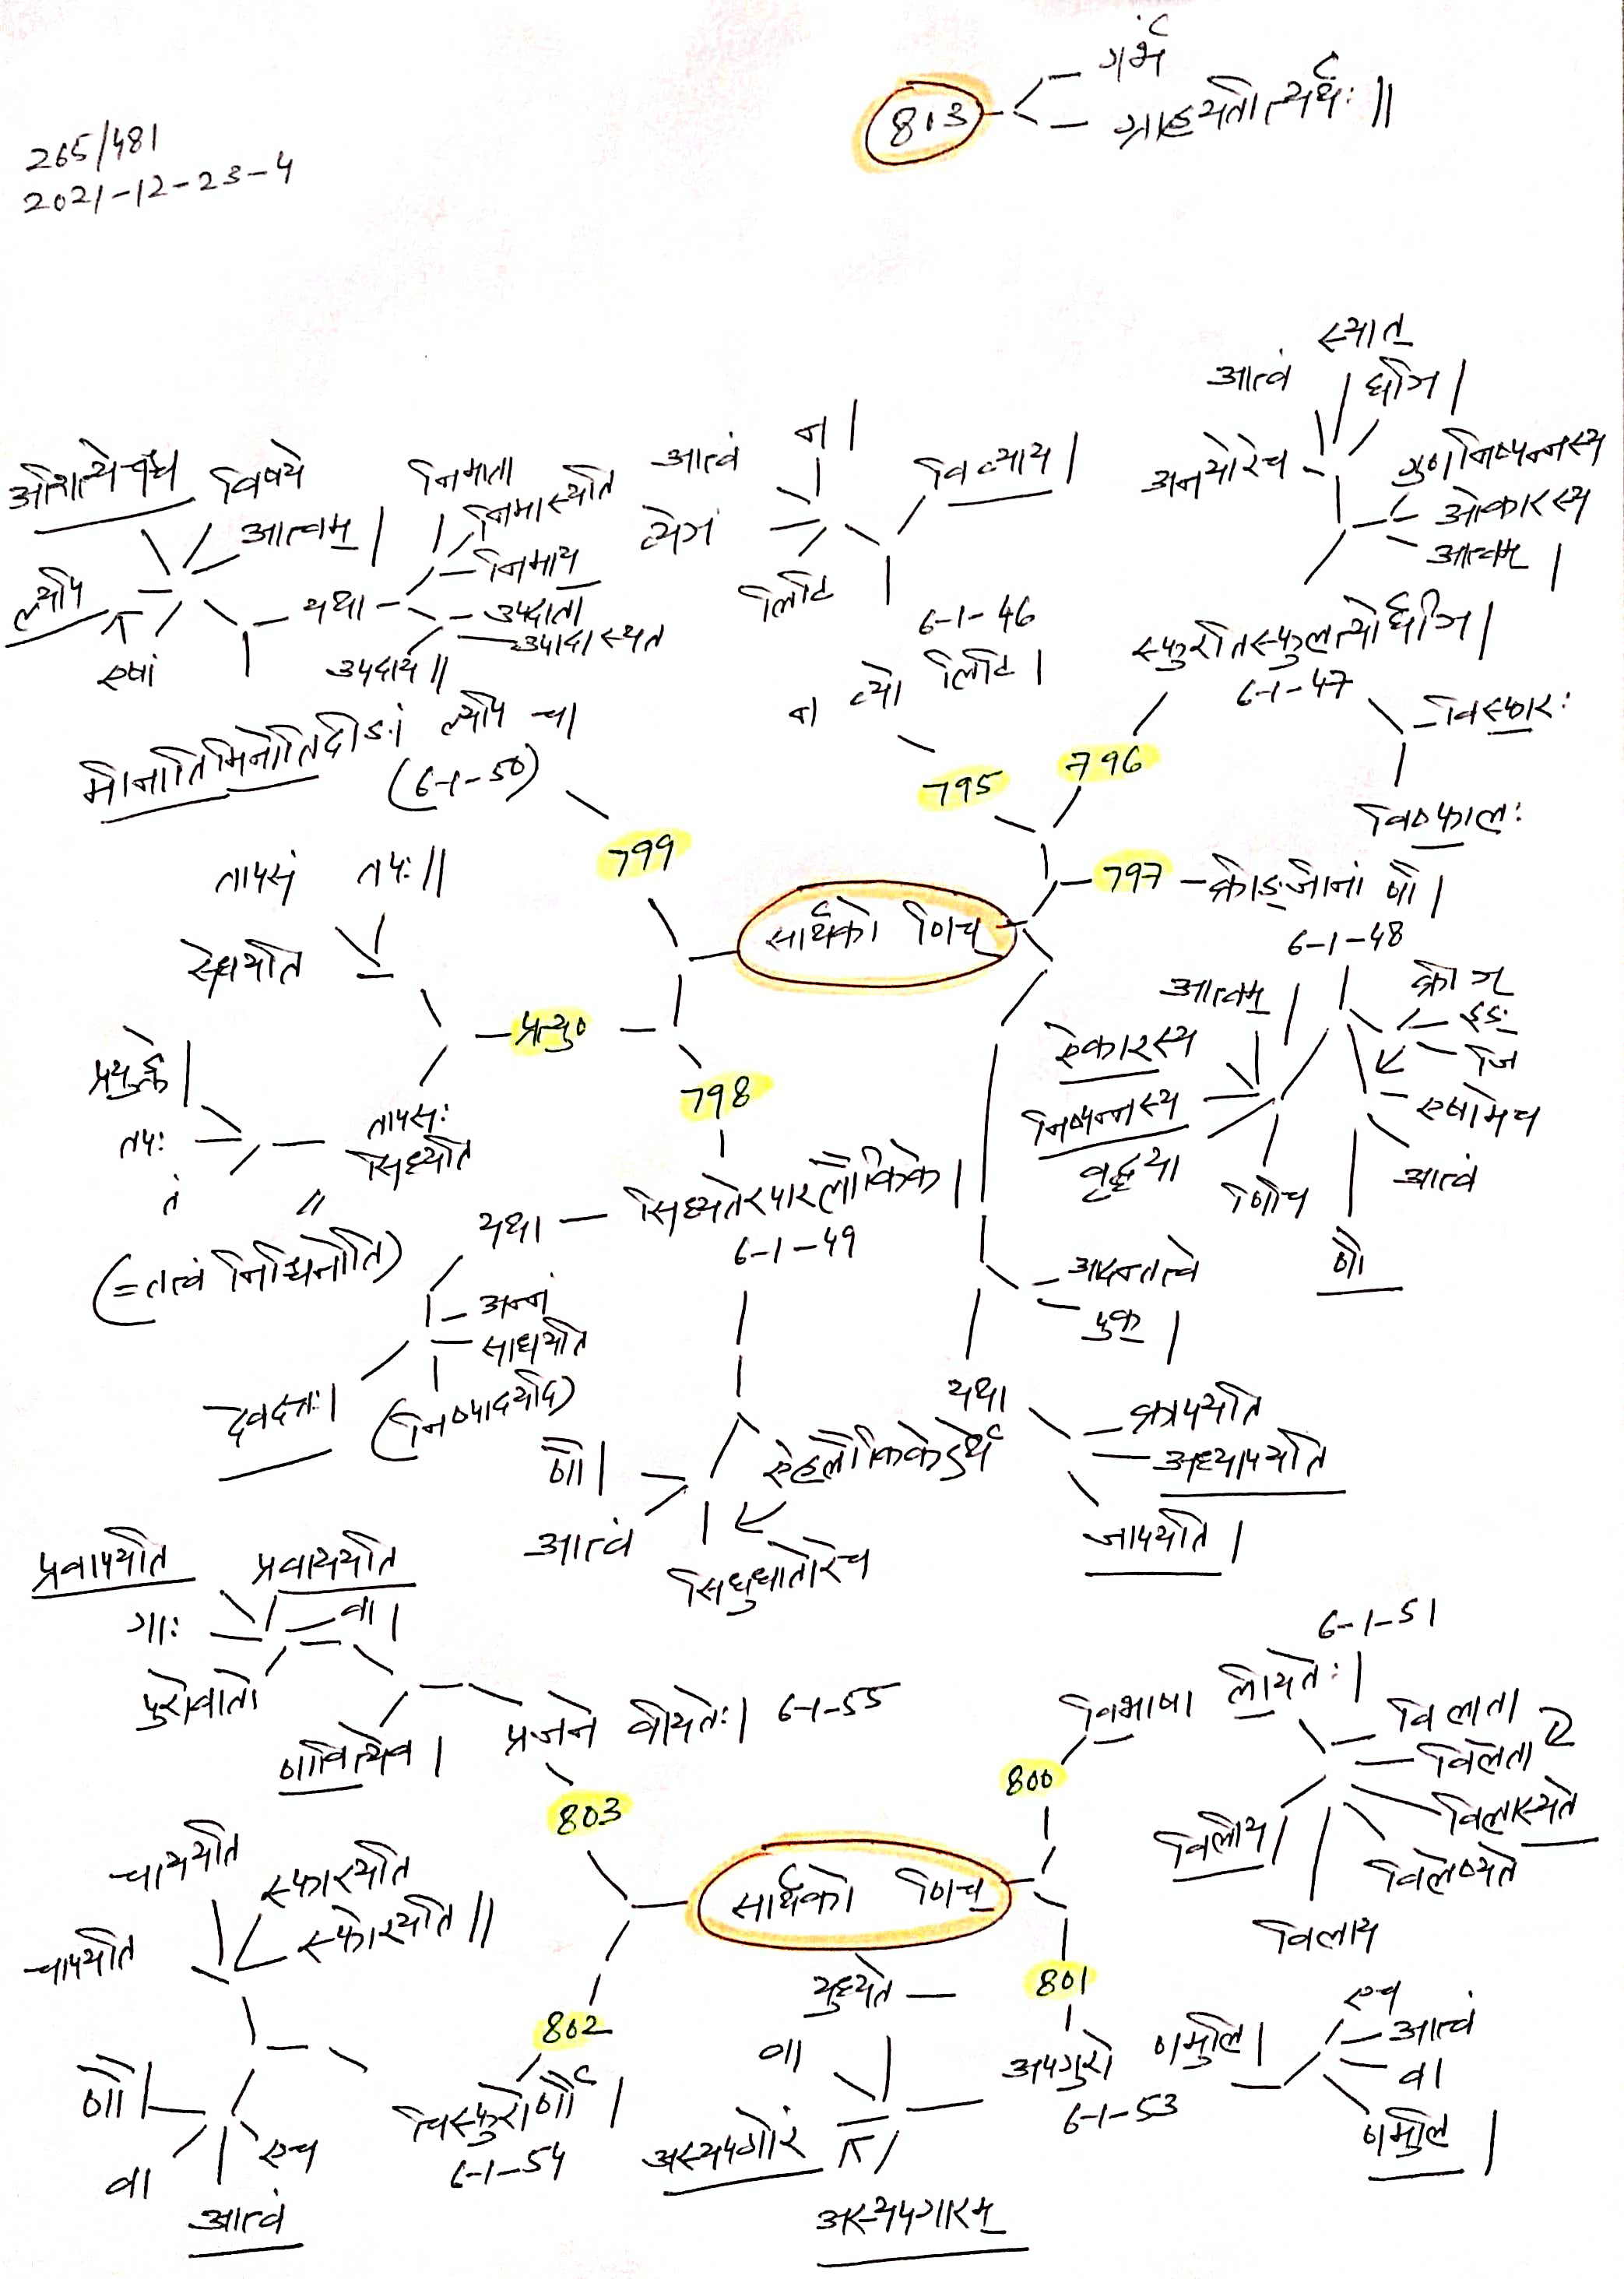 813
गर्भं
ग्राहयतीत्यर्थः ||
265/481
2021-12-23-4
स्यात्
आत्वं
घञि |
अनयोरेच
गुणनिष्पन्नस्य
ओकारस्य
आत्वम् |
न |
आत्वं
विव्याय |
व्येञ
लिटि
6-1-46
न व्यो लिटि |
विषये
आत्वम् |
ल्यपि
एषां
यथा
निमाता
निमास्यति
निमाय
उपदाता
उपदास्यते
उपदाय ||
मीनातिमिनोतिदीङां ल्यपि च |
(6-1-50)
स्फुरतिस्फुलत्योर्घञि |
6-1-47
विस्फारः
विष्फालः
795
796
799
797
क्रीङ्जीनां णौ |
6-1-48
तापसं तपः ||
सेधयति
सार्थको णिच्
प्रत्यु०
798
प्रयुङ्क्ते |
तपः
तं
तापसः
सिध्यति
(= तत्वं निश्चिनोति)
आत्वम् |
ऐकारस्य
निष्पन्नस्य
वृद्ध्या
णिचि
क्रीञ्
इङ्
जि
एषामेच
आत्वं
णौ
यथा
सिध्यतेरपारलौकिके |
6-1-49
अन्नं
साधयति
देवदत्तः |
आदन्तत्वे
पुक् |
यथा
क्रापयति
अध्यापयति
जापयति |
णौ |
ऐहलौकिकेऽर्थे
आत्वं
सिधुधातोरेच
प्रवापयति
प्रवाययति
गाः
वा |
पुरोवातो
णावित्येव |
प्रजने वीयतेः | 6-1-55
803
6-1-51
विभाषा लीयतेः |
800
विलाता
विलेता
विलास्यते
विलेष्यते
विलाय
विलीय |
चाययति
चापयति
स्फारयति
स्फोरयति ||
सार्थको णिच्
802
801
युध्यते
वा
अपगुरो णमुलि |
6-1-53
एच
आत्वं
वा
णमुलि |
अस्यपगोरं
अस्यपगारम्
णौ |
वा
एच
आत्वं
चिस्फुरोर्णौ |
6-1-54